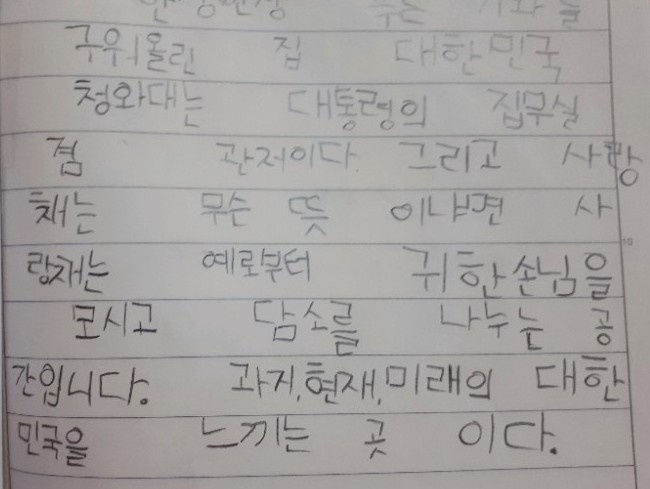 구워올린 집 대한민국
청와대는 대통령의 집무실
겸 관저이다. 그리고 사랑
채는 무슨 뜻 이냐면 사
랑재는 예로부터 귀한손님을
모시고 담소를 나누는 공
간입니다. 과지,현재,미래의 대한
민국을 느끼는 곳 이다.